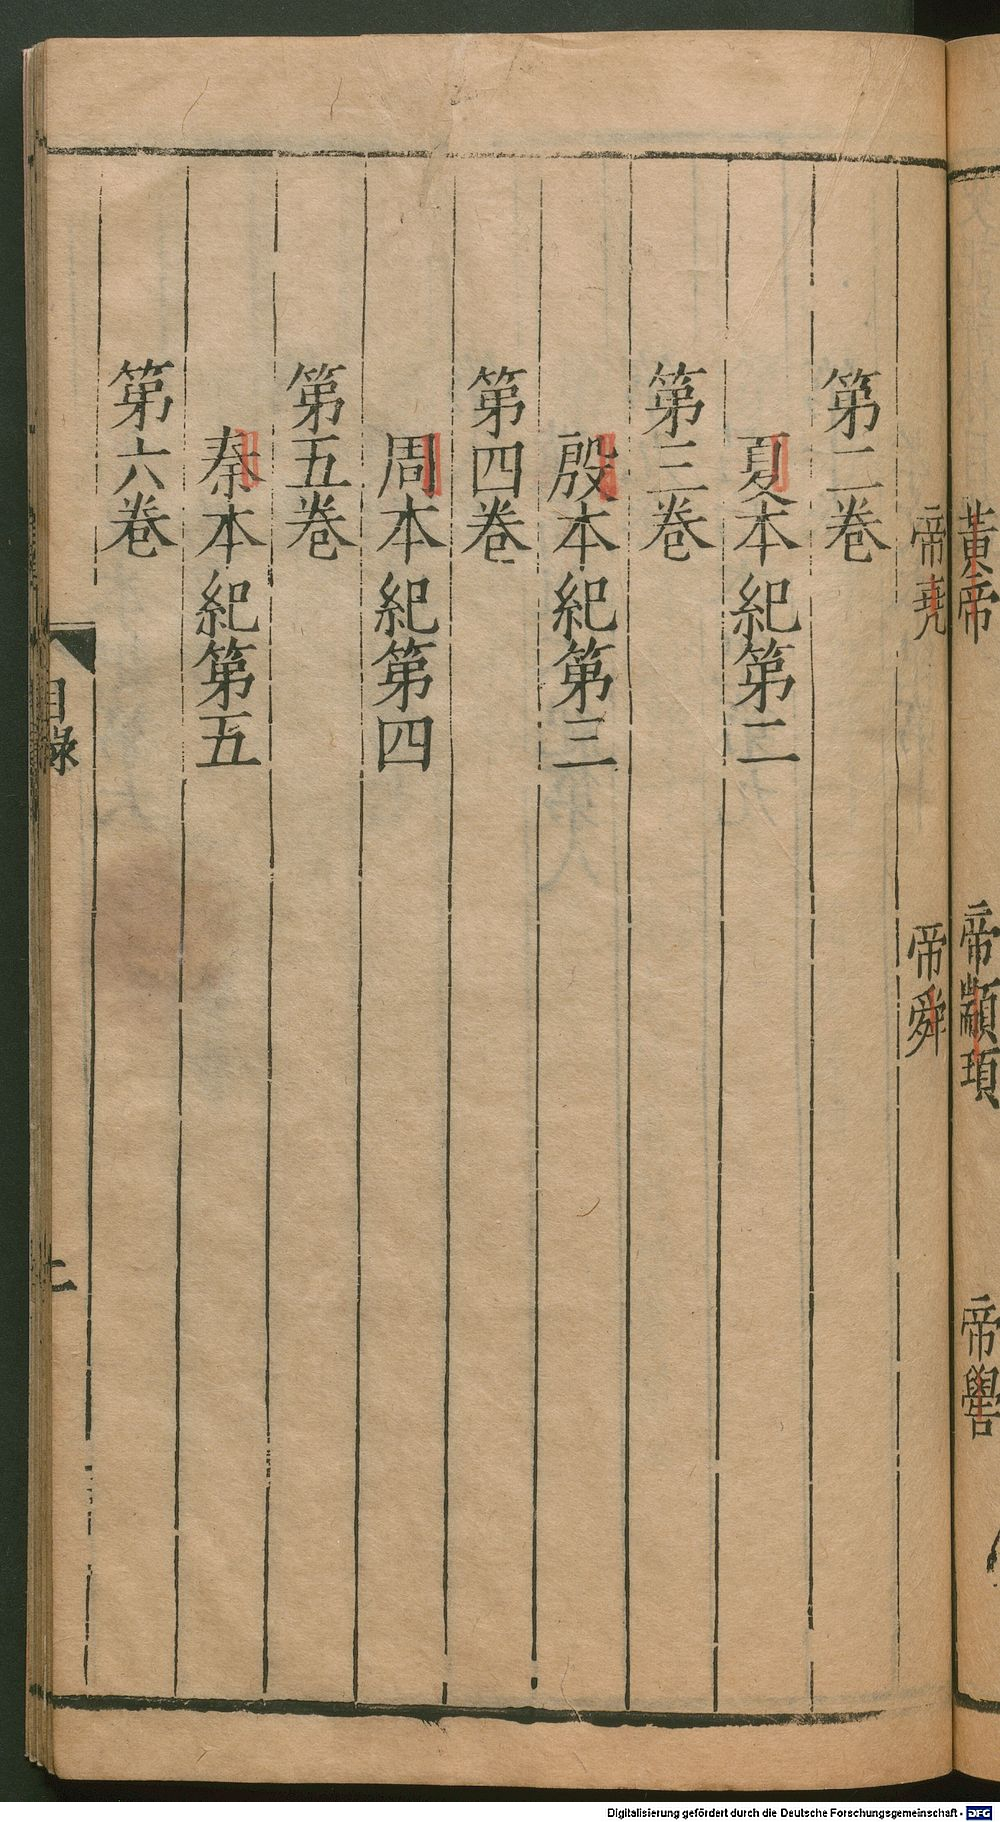 黃帝 帝顓頊 帝嚳
帝堯 帝舜
第二卷
夏本紀第二
第三卷
殷本紀第三
第四卷
周本紀第四
第五卷
秦本紀第五
第六卷
目録
Digitalisierung gefördert durch die Deutsche Forschungsgemeinschaft - DFG